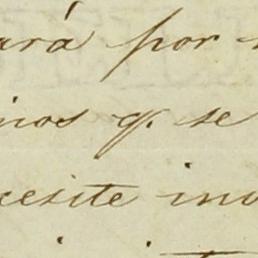 ará por
inos q. se
cesite in